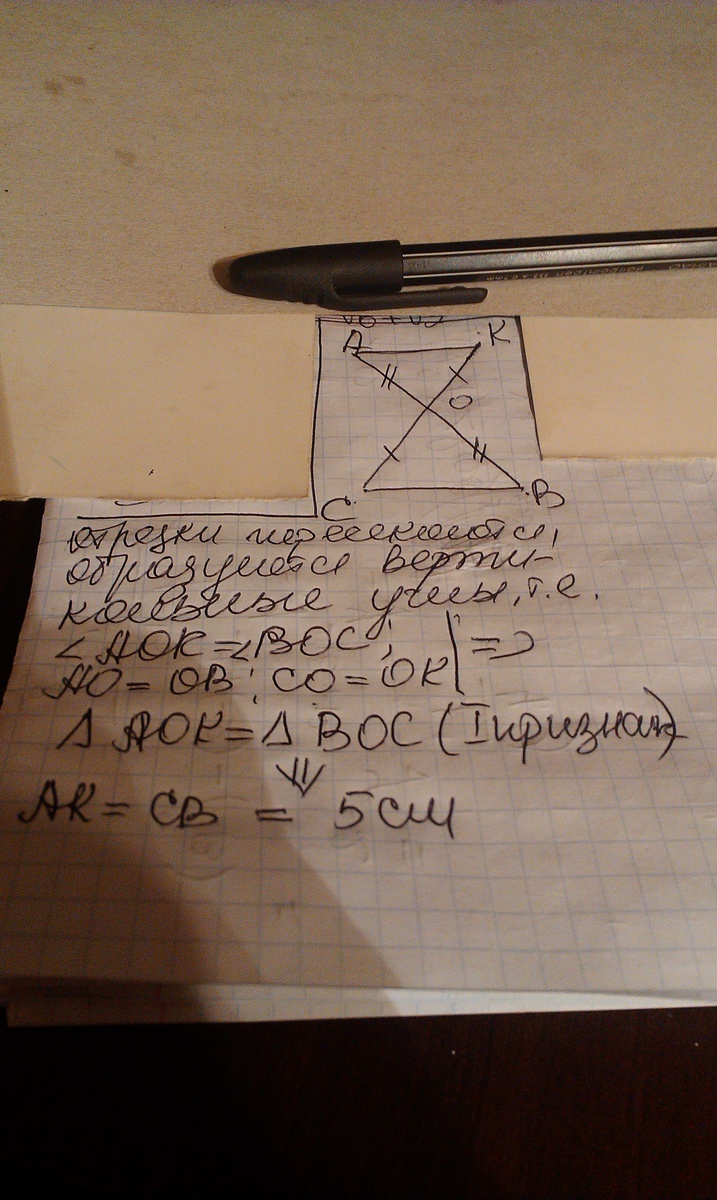 A
K
O
C
B
отрезки пересекаются,
образуются верти-
кальные углы, т.е.
∠AOK=∠BOC;
AO=OB; CO=OK | =>
Δ AOK=Δ BOC (I признак)
⇓
AK= CB = 5см